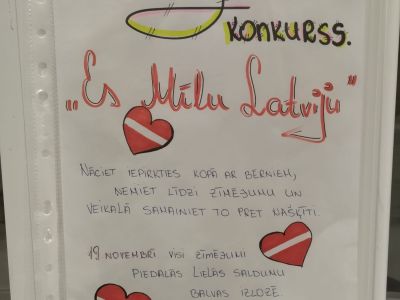 KONKURSS.
„Es Mīlu Latviju"
NĀCIET IEPIRKTIES KOPĀ AR BĒRNIEM,
ŅEMIET LĪDZI ZĪMĒJUMU UN
VEIKALĀ SAMAINIET TO PRET NAŠĶĪTI.
19 NOVEMBRĪ VISI ZĪMĒJUMI
PIEDALĀS LIELĀS SALDUMU
BALVAS IZLOZĒ.